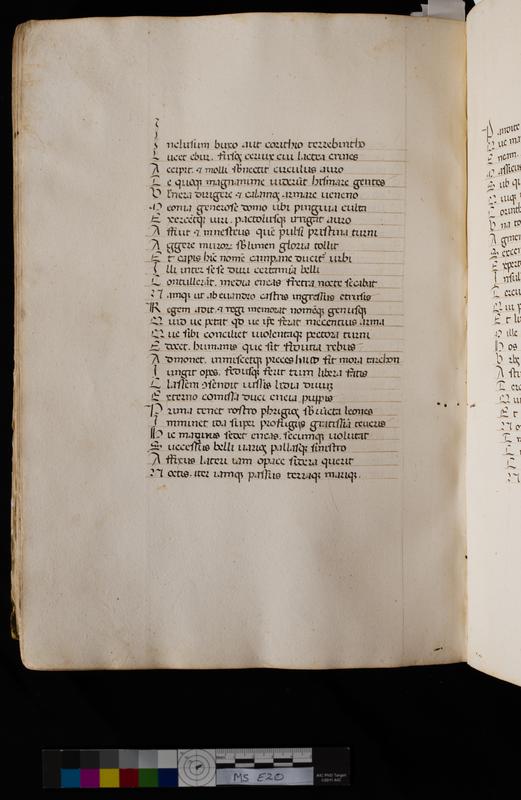 I nclusum buxo aut corithio terrebintho
L ucet ebur. fusoq; ceruix cui lactea crines
A ccipit. & molli sbnectit circulus auro
T e quoq; magnanime uiderūt hismare gentes
V lnera dirigere & calamoq; armare ueneno
M eonia generose domo ubi pinguia culta
E xercētq; uiri. pactolusq; irrigat auro
A ffuit & mnesteus quē pulsi pristina turni
A ggere muroꝝ sblimen gloria tollit
E t capis hīc nomē campane ducit urbi
I lli inter se se duri certamīa belli
C ontullerāt. media eneas freta nocte secabat
N amq; ut ab euandro castris ingressus etrusis
R egem adit & regi memorat nomēq; genusq;
Q uid ue petat qd ue ipse ferat mecentius arma
Q ue sibi conciliet uiolentaq; pectora turni
E docet. humanis que sit fiducia rebus
A dmonet. inmiscetq; preces haud fit mora tarchon
I ungit opes. fedusq; ferit tum libera fatis
C lassem cōscendit iussis lidia diuuȝ
E xterno comissa duci eneia puppis
P rima tenet rostro phrigioq; sbiūcta leones
I mminet ida super profugis gratissīa teucris
H ic magnus sedet eneas. secumq; uolutat
E uentus belli uarios pallasq; sinistro
A ffixus lateri iam opace sidera querit
N octis. iter iamq; passus terraq; mariq;.
MS E20